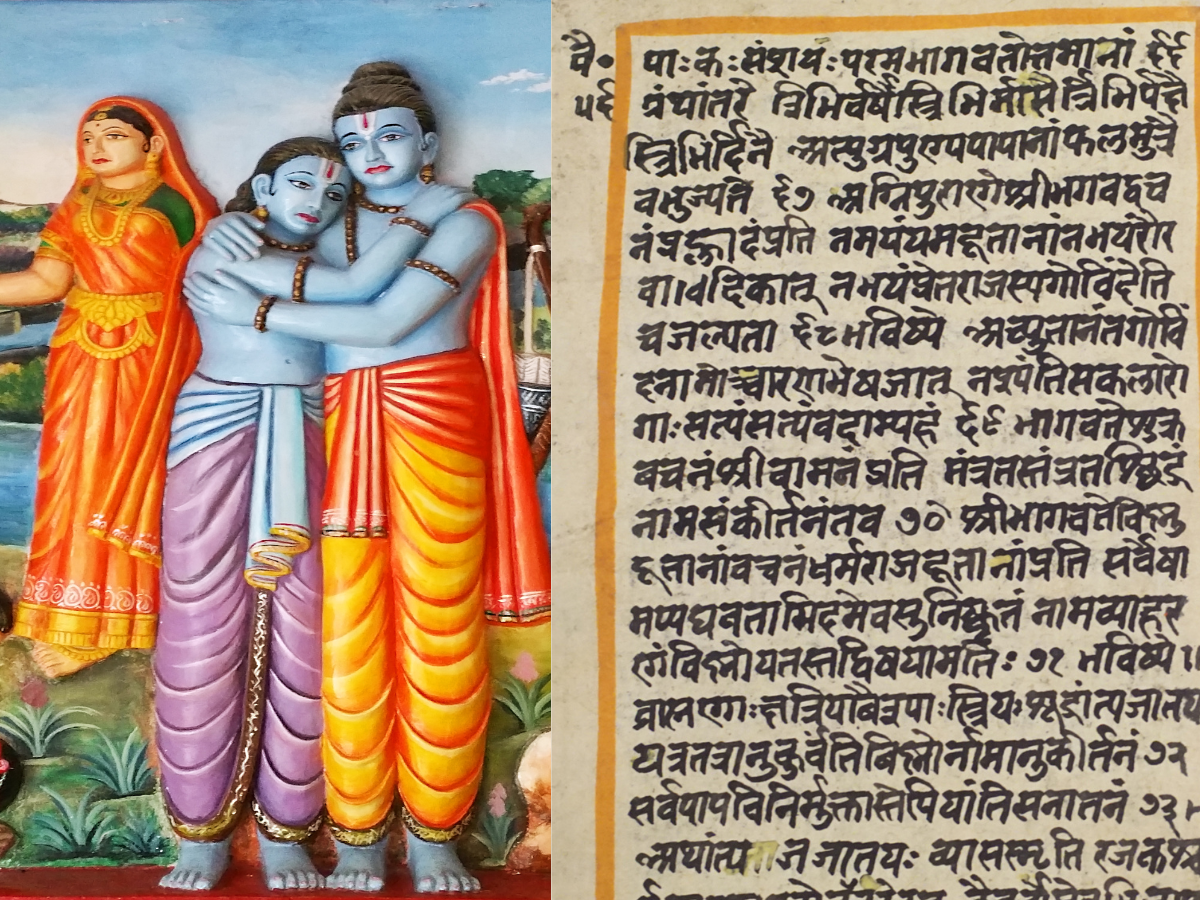 वै॰ पाः कः संशयः परमभागवतोत्तमानां ६६
प६ ग्रंथांतरे त्रिभिर्वर्षैस्त्रिभिर्मासैर्त्रिभिर्पक्षै
स्त्रिभिर्दिनै अत्युग्रपुण्यपापानांफलमुत्रै
वभुज्यते ६७ अग्निपुराणेश्रीभगवद्वच
नंप्रह्लादंप्रति नभयंयमदूतानांनभयंरौर
वा।दिकात् नभयंप्रेतराजस्यगोविंदेति
चजल्पता ६८ भविष्ये अच्युतानंतगोविं
दनामोच्चारणभेषजात् नश्यंतिसकलारो
गाःसत्यंसत्यंवदाम्यहं ६९ भागवतेशुक्र
वचनंश्रीवामनंप्रति मंत्रतस्तंत्रतश्छिद्रं
नामसंकीर्तनंतव ७० श्रीभागवतेविष्णु
दूतानांवचनंधर्मराजदूतानांप्रति सर्वेषा
मप्यघवतामिदमेवसुनिष्कृतं नामव्याहर
णंविष्णोयतस्तद्विषयामतिः ७१ भविष्ये॥
ब्राह्मणाःक्षत्रियावैश्याःस्त्रियःशूद्रांत्यजातय
यत्रतत्रानुकुर्वंतिविष्णोर्नामानुकीर्तनं ७२
सर्वपापविनिर्मुक्तास्तेपियांतिसनातनं ७३।
अथांत्यजजातयः व्यासस्मृति रजकश्च